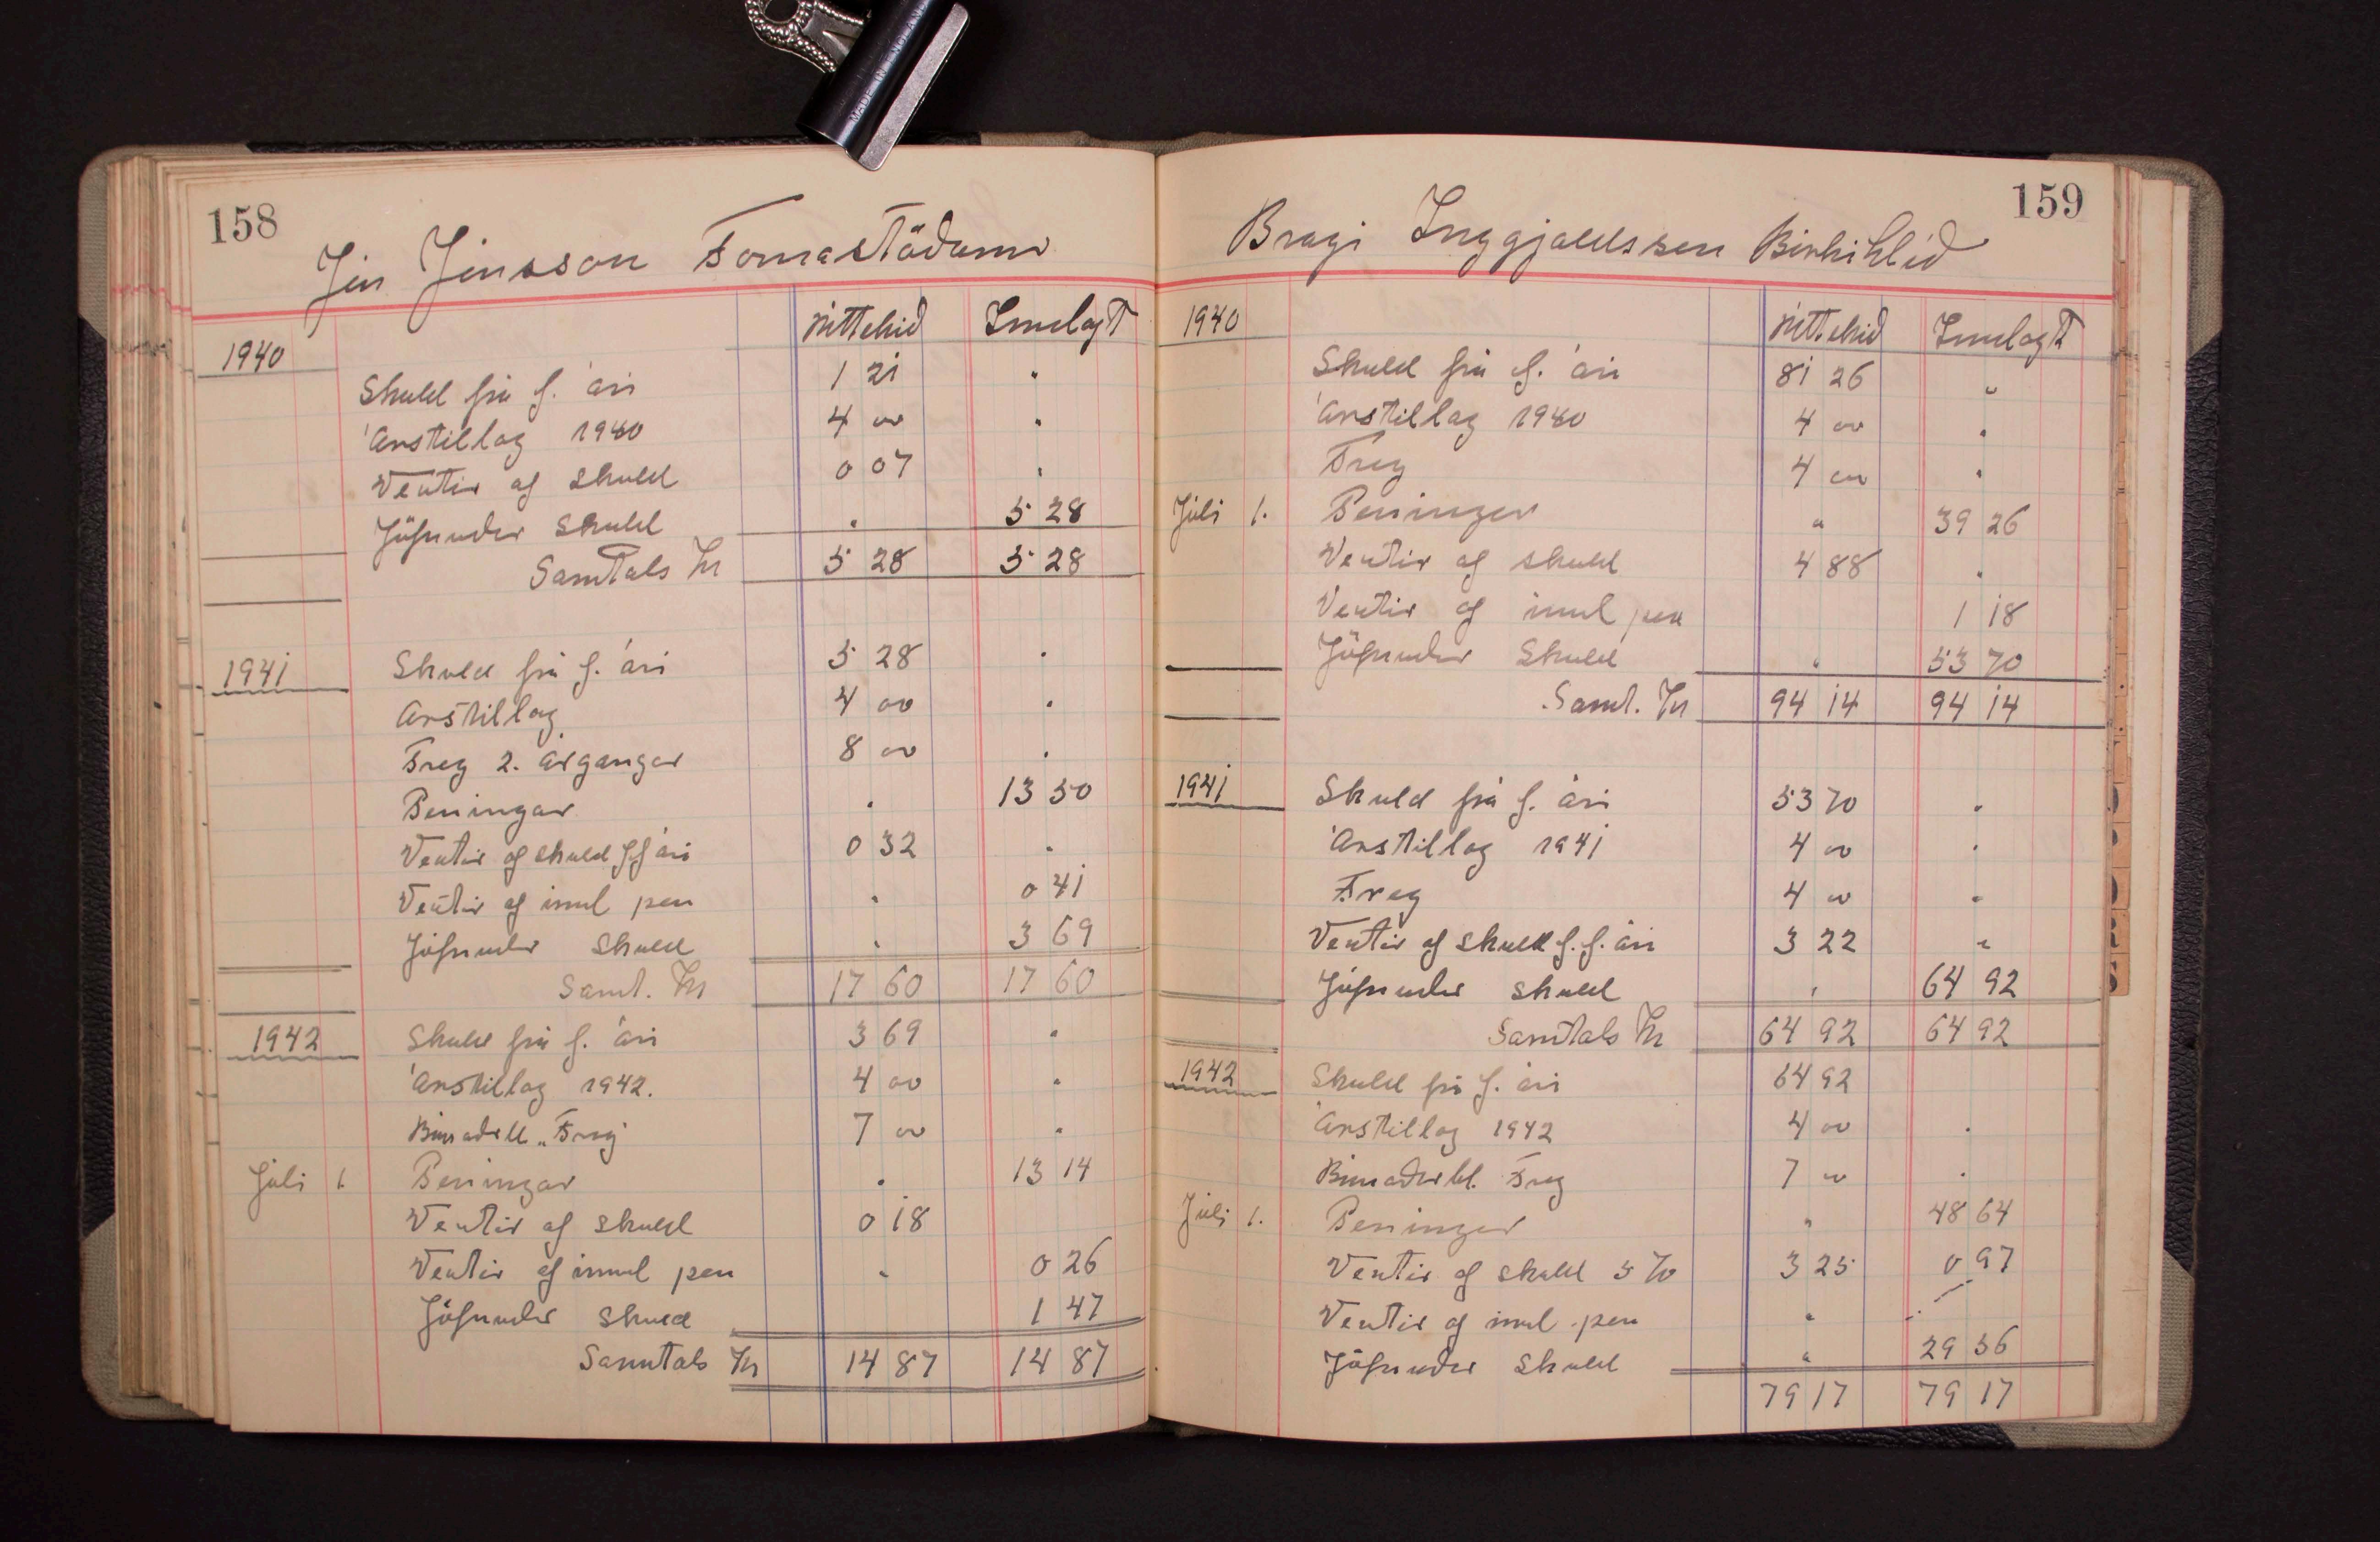 MADE IN ENGLAND
158
Jón Jónsson Fornastöðum
Úttekið Innlagt
1940
Skuld frá f. ári 1 21 "
Árstillag 1940 4 00 "
Vextir af skuld 0 07 "
Jöfnuður skuld " 5 28
Samtals Kr 5 28 5 28
1941 Skuld frá f. ári 5 28 "
Árstillag 4 00 "
Freyr 2. árgangar 8 00 "
Peningar " 13 50
Vextir af skuld f f ári 0 32 "
Vextir af innl pen " 0 41
Jöfnuður skuld " 3 69
Samt. Kr 17 60 17 60
1942 Skuld frá f. ári 3 69 "
Árstillag 1942. 4 00 "
Búnaðbl. „Frey 7 00 "
Júlí 1 Peningar " 13 14
Vextir af skuld 0 18
Vextir af innl pen " 0 26
Jöfnuður skuld 1 47
Samtals Kr 14 87 14 87
159
Bragi Inggjaldssen Birkihlíð
1940 Úttekið Innlagt
Skuld frá f. ári 81 26 "
Árstillag 1940 4 00 "
Frey 4 00 "
Júlí 1. Peningar " 39 26
Vextir af skuld 4 88 "
Vextir af innl pen 1 18
Jöfnuður skuld " 53 70
Samt. Kr 94 14 94 14
1941 Skuld frá f. ári 53 70 "
Árstillag 1941 4 00 "
Frey 4 00 "
Vextir af skuld f. f. ári 3 22 "
Jöfnuður skuld " 64 92
Samtals Kr 64 92 64 92
1942 Skuld frá f. ári 64 92
Árstillag 1942 4 00 "
Búnaðarbl. Frey 7 00 "
Júlí 1. Peninger " 48 64
Vextir af skuld 5 % 3 25 0 97
Vextir af innl. pen "
Jöfnuður skuld " 29 56
79 17 79 17